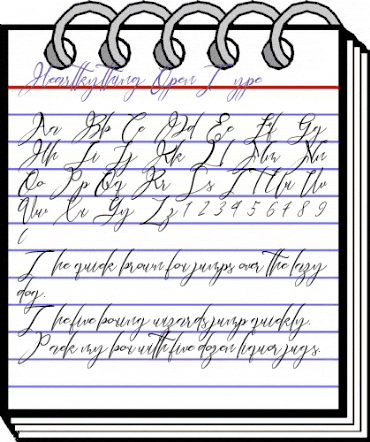 Heartkything Open Type
Aa Bb Cc Dd Ee Ff Gg
Hh Ii Jj Kk Ll Mm Nn
Oo Pp Qq Rr Ss Tt Uu Vv
Ww Xx Yy Zz 1 2 3 4 5 6 7 8 9
The quick brown fox jumps over the lazy
dog.
The five boxing wizards jump quickly.
Pack my box with five dozen liquor jugs.